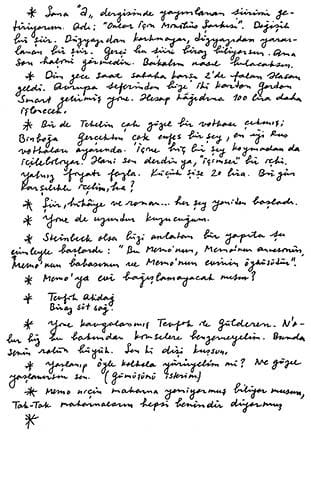 * Sana "a" dergisinde yayımlanan şiirimi ge-
tiriyorum. Adı: "Onlar İçin Minibüs Şarkısı". Değişik
bir şiir. Düzyazıdan korkmayan, düzyazıdan yarar-
lanan bir şiir. Gerçi bu şiiri biraz biliyorsun. Ama
son halini görmedin. Bakalım nasıl bulacaksın.
* Dün gece saat sabaha karşı 2'de falan Hasan
geldi. Avrupa seferinden bize iki karton Gordon
Smart getirmiş yine. Hesap kâğıdıma 100 lira daha
işlenecek.
* Bir de Tekelin çok güzel bir votkası çıkmış:
Binboğa. Gerçekten çok enfes bir şey, en iyi Rus
votkaları ayarında. İçine hiç bir şey koymadan da
içilebiliyor. Hani sen derdin ya, "içimser" bir içki.
Yalnız fiyatı fazla. Küçük şişe 20 lira. Bir gün
karşılıklı içelim, ha?
* Şiir, hikâye ve roman... her şey yeniden başladı.
* Yine de uzundur kuyruğum.
* Steinbeck olsa bizi anlatan bir yapıta şu
cümleyle başlardı: "Bu Memo'nun, Memo'nun annesinin,
Memo'nun babasının ve Memo'nun evinin öyküsüdür".
* Memo'ya evi bağışlamayacak mısın?
* Tevfik Akdağ
Biraz süt sağ.
* Yine kavgalarmış Tevfik ile Gülderen. N'o-
lur biz bu bakımdan kimselere benzemeyelim. Bunda
senin rolün büyük. Sen ki dişi kuşsun.
* Yaşlanıp öyle kolkola yürüyelim mi? Ne güzel
yaşlanırsın sen. (Gümüşünü )
* Memo niçin makarna yemiyormuş biliyor musun,
Tak-Tak makarnaların hepsi benimdir diyormuş
*